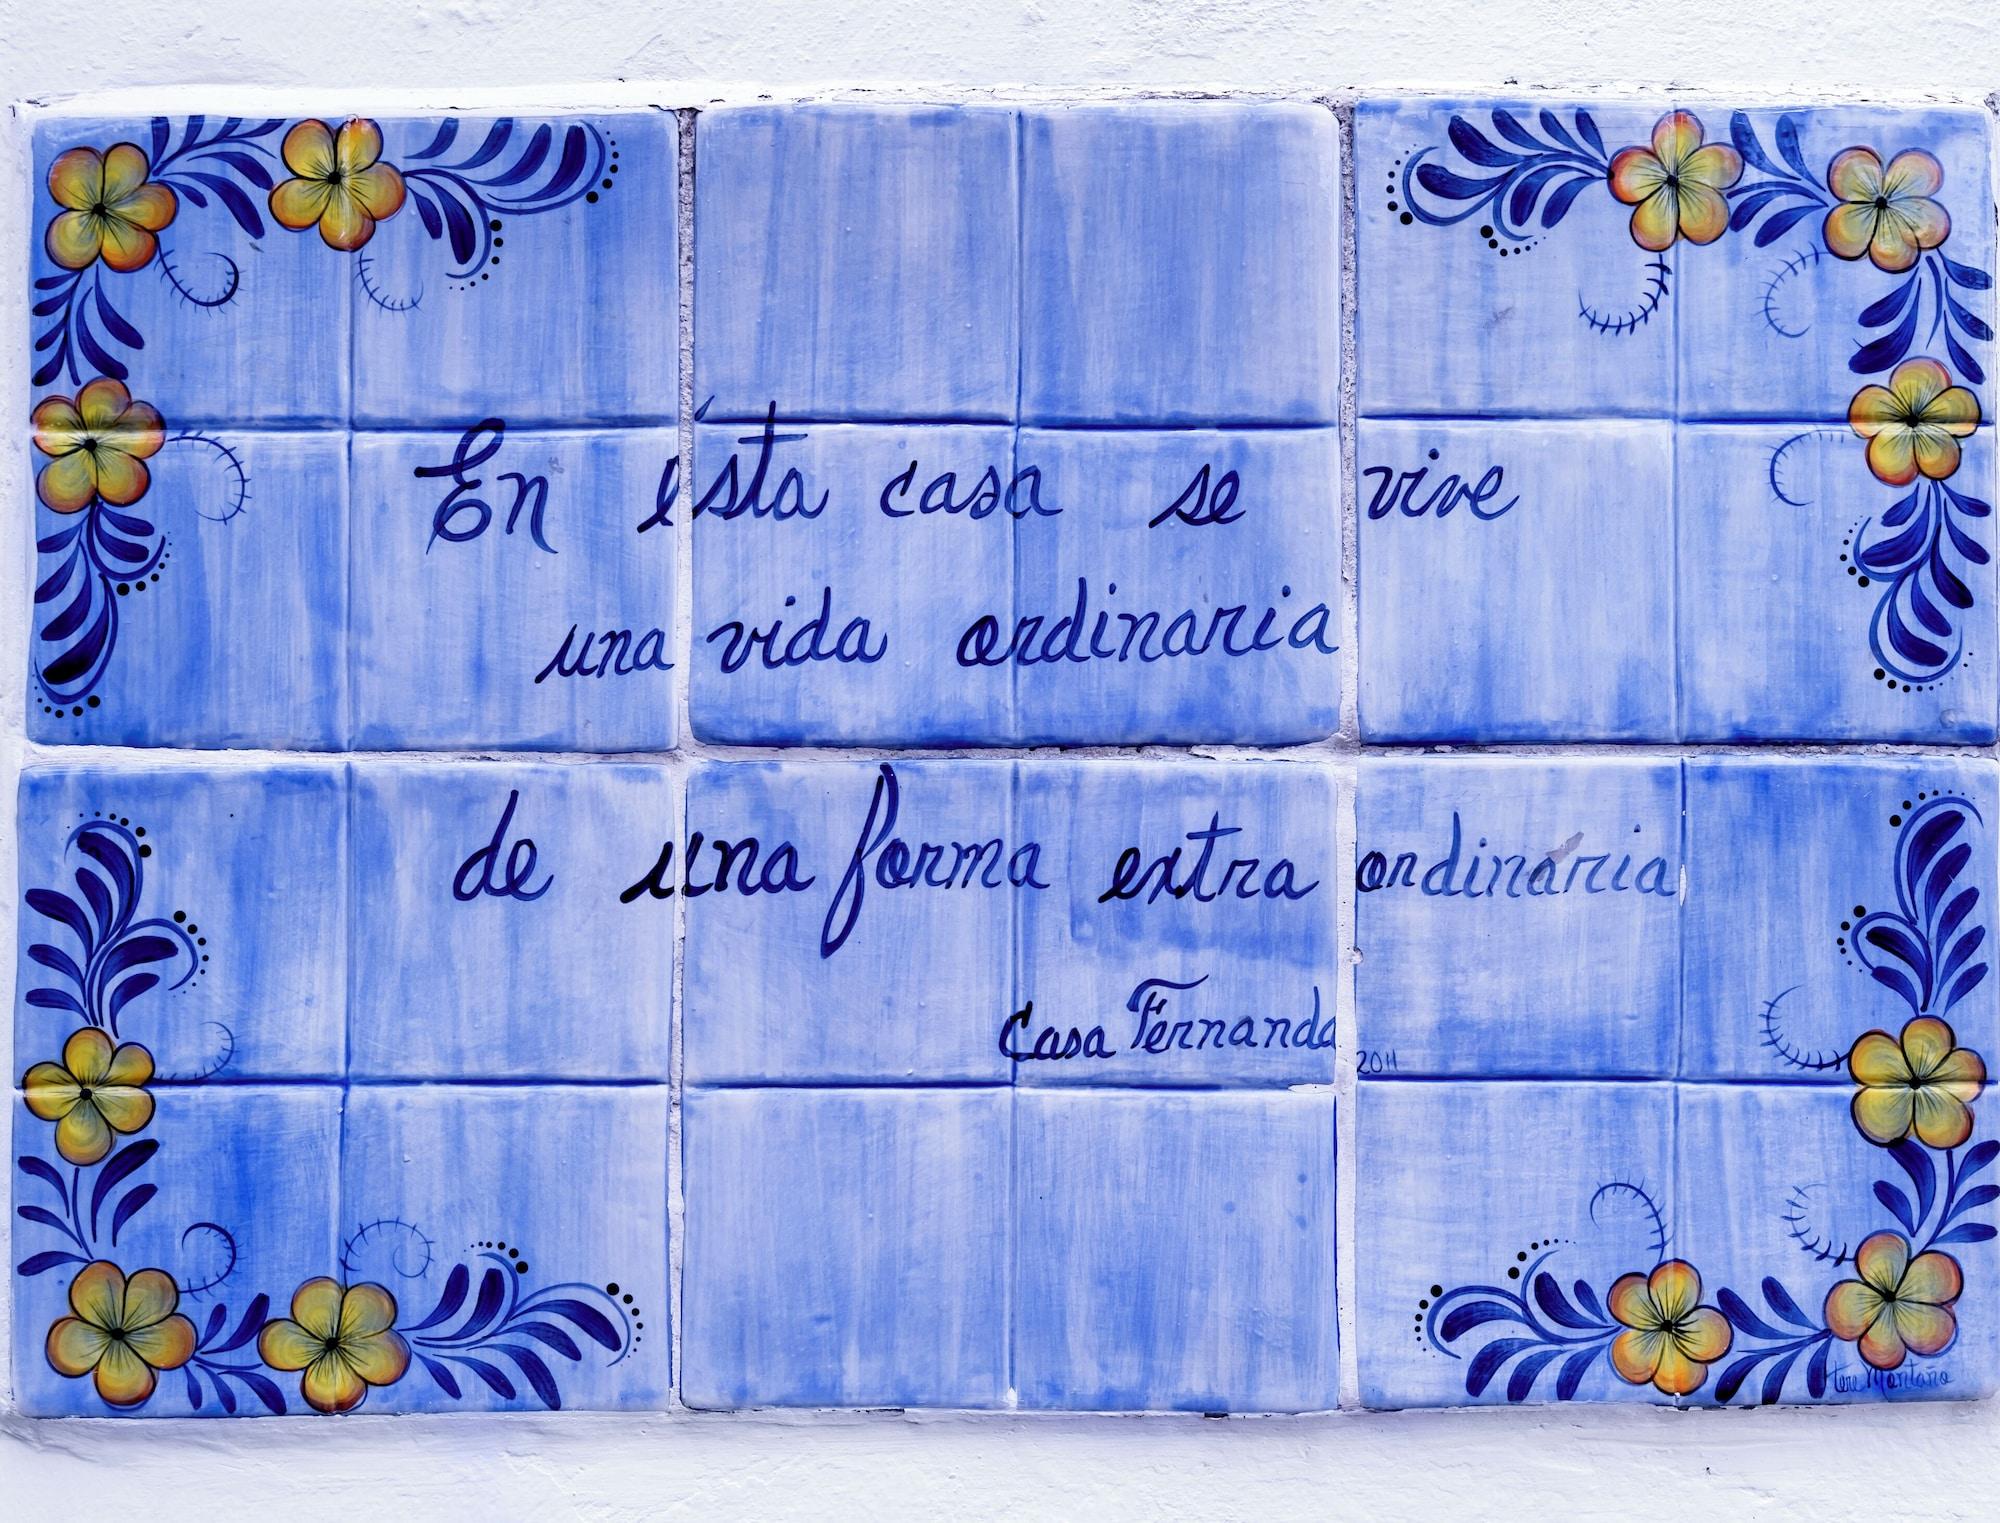 En ésta casa se vive
una vida ordinaria
de una forma extra ordinaria
Casa Fernanda
2011
Tere Montaño